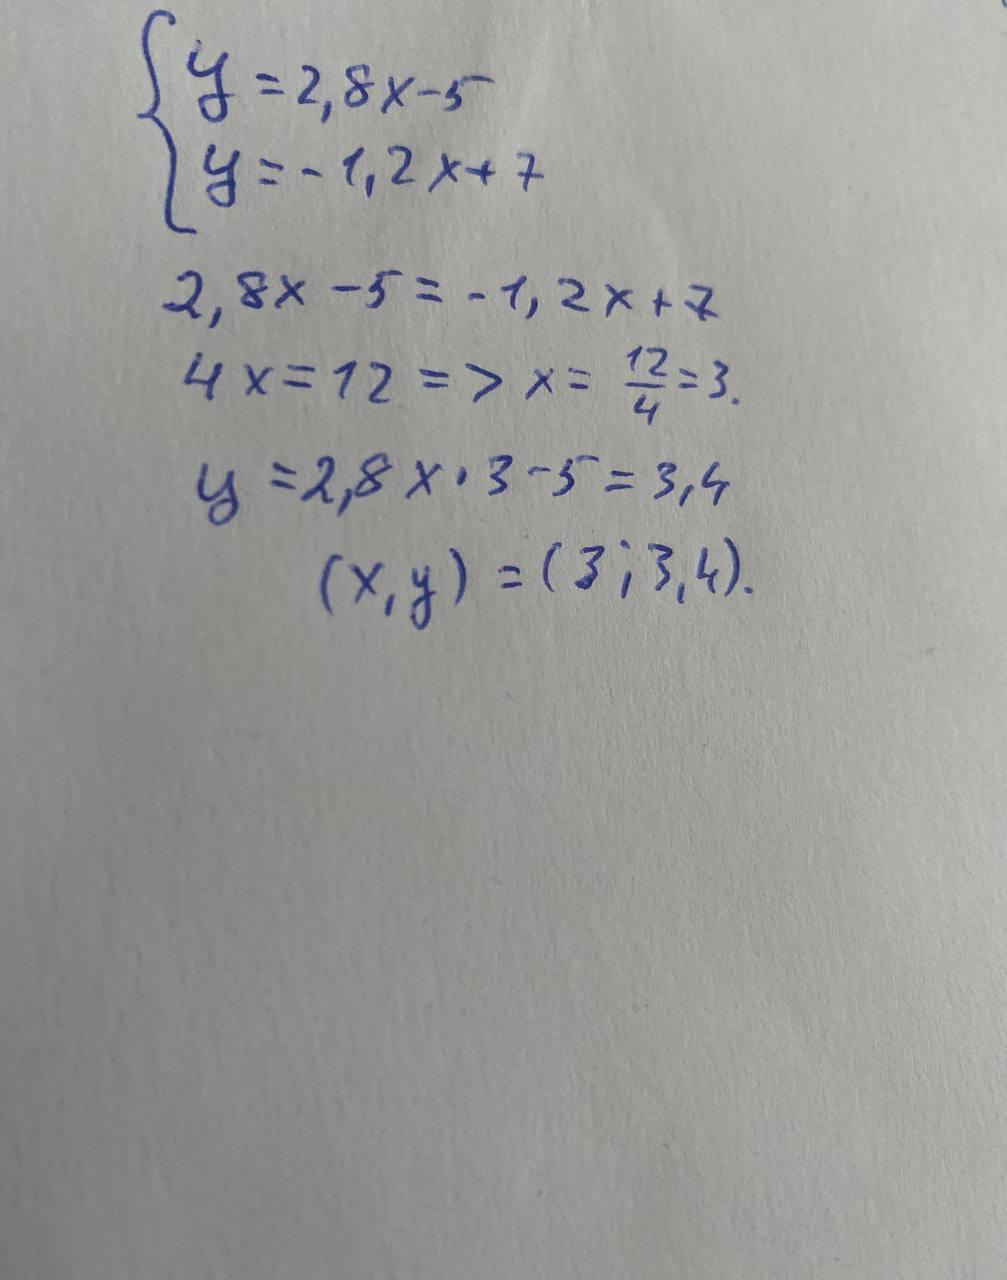 { y = 2,8x - 5
y = - 1,2x + 7
2,8x - 5 = - 1,2x + 7
4x = 12 => x = 12/4 = 3.
y = 2,8x · 3 - 5 = 3,4
(x, y) = (3; 3,4).